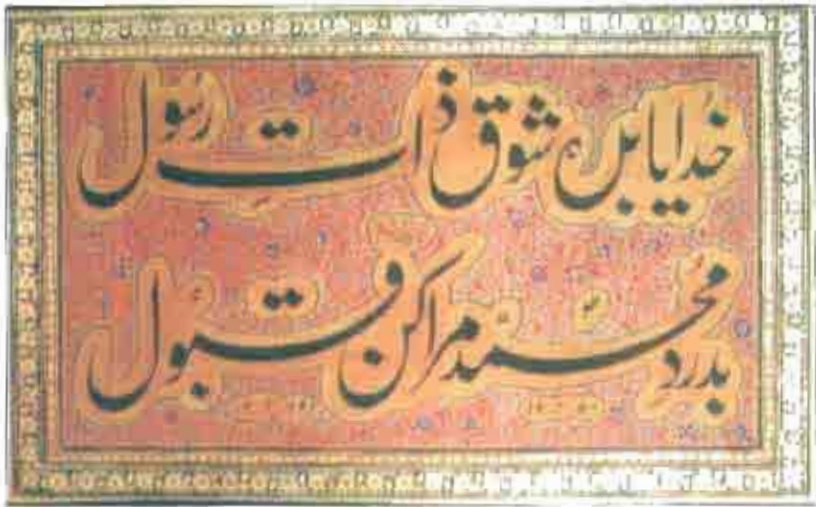 خدایا بده شوق ذات رسول
بدرد محمد مرا کن قبول